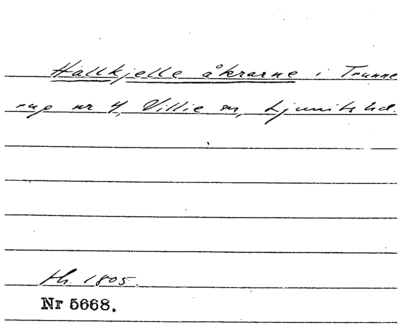 Hallkjelle åkrarne i Trunne
rup nr 4, Villie sn, Ljunits hd.
th. 1805.
Nr 5668.